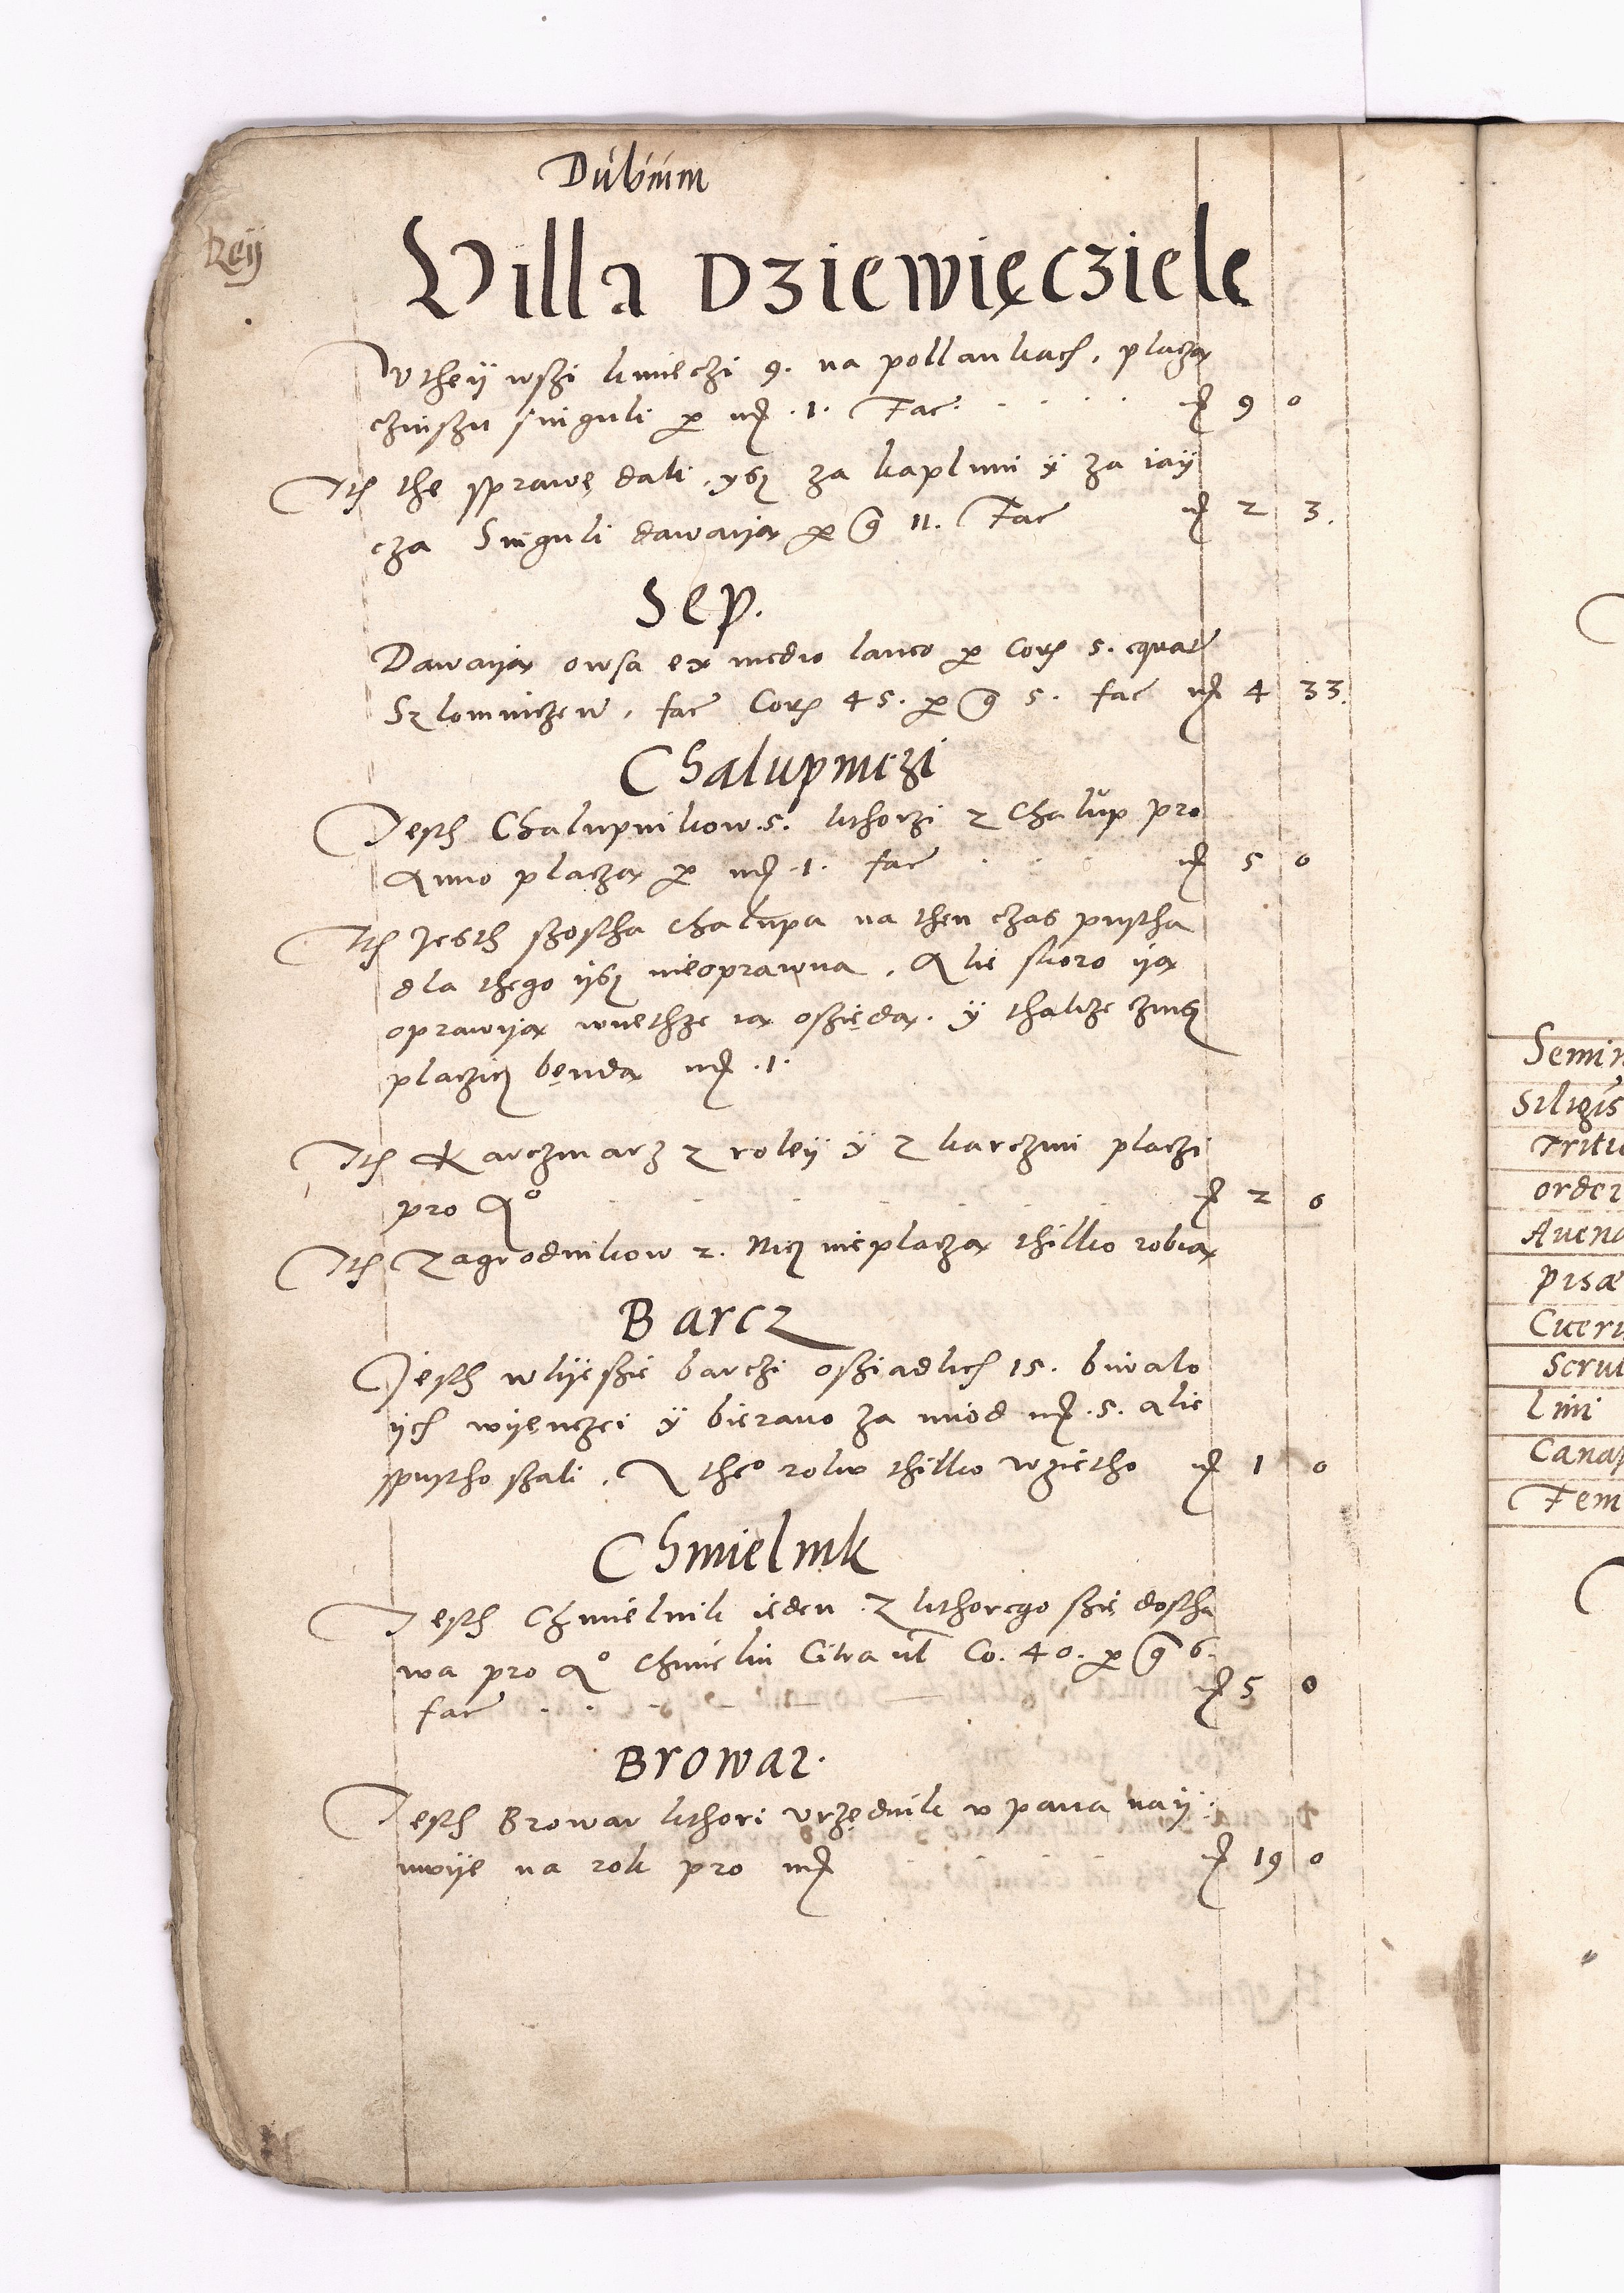 Dubium
Reÿ
Villa Dzïewięcziele
W theÿ wszi kmieczi 9. na pollankach, placzą
czinszu singuli per mр. 1. Fac. mр 9 0
Ith the sprawę dali, ysz za kapluni ÿ za iaÿ
cza Singuli dawaÿą per g 11. Fac mр 2 3.
Sep.
Dawaÿą owsa ex medio laneo per Cor 5. equat
Szlomniczew, fac Cor 45. per g 5. fac mр 4 33.
Chalupniczi
Jesth Chalupnikow 5. kthorzi z Chalup pro
Anno placzą per mр 1. fac mр 5 0
Ith Jesth szostha chalupa na then czas pustha
dla thego ÿsz nieoprawna. Alie skoro ÿą
oprawÿą wnethze ią osziędą. ÿ thakze czinsz
placzicz bęndą mр .1.
Ith Karczmarz z roleÿ ÿ z karczmi placzi
pro Ao mр 2 0
Ith Zagrodnikow 2. Nicz nieplaczą thilko robią
Barcz
Jesth w lÿeszie barczi osziadlich 15. biwalo
ÿch wÿenczei ÿ bierano za miod mр. 5. alie
spusthoszali, Z theo roku thilko wzietho mр 1 0
Chmielnik
Jesth Chmielnik ieden z kthorego szię dostha
wa pro Ao chmieliu Citra vl Co. 40. per g 6.
fac mр 5 0
Browar.
Jesth Browar kthori vrzędnik v pana naÿ
mwÿe na rok pro mр mр 19 0
Semin
Siligis
Tritic
ordei
Auena
pisæ
Cicer
Lini
Cana